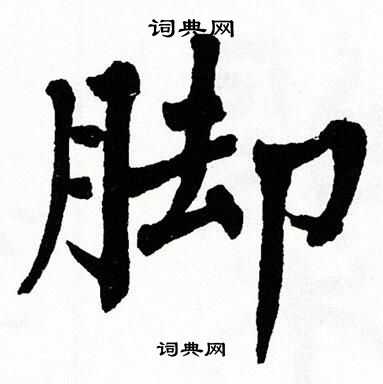 词典网
脚
词典网